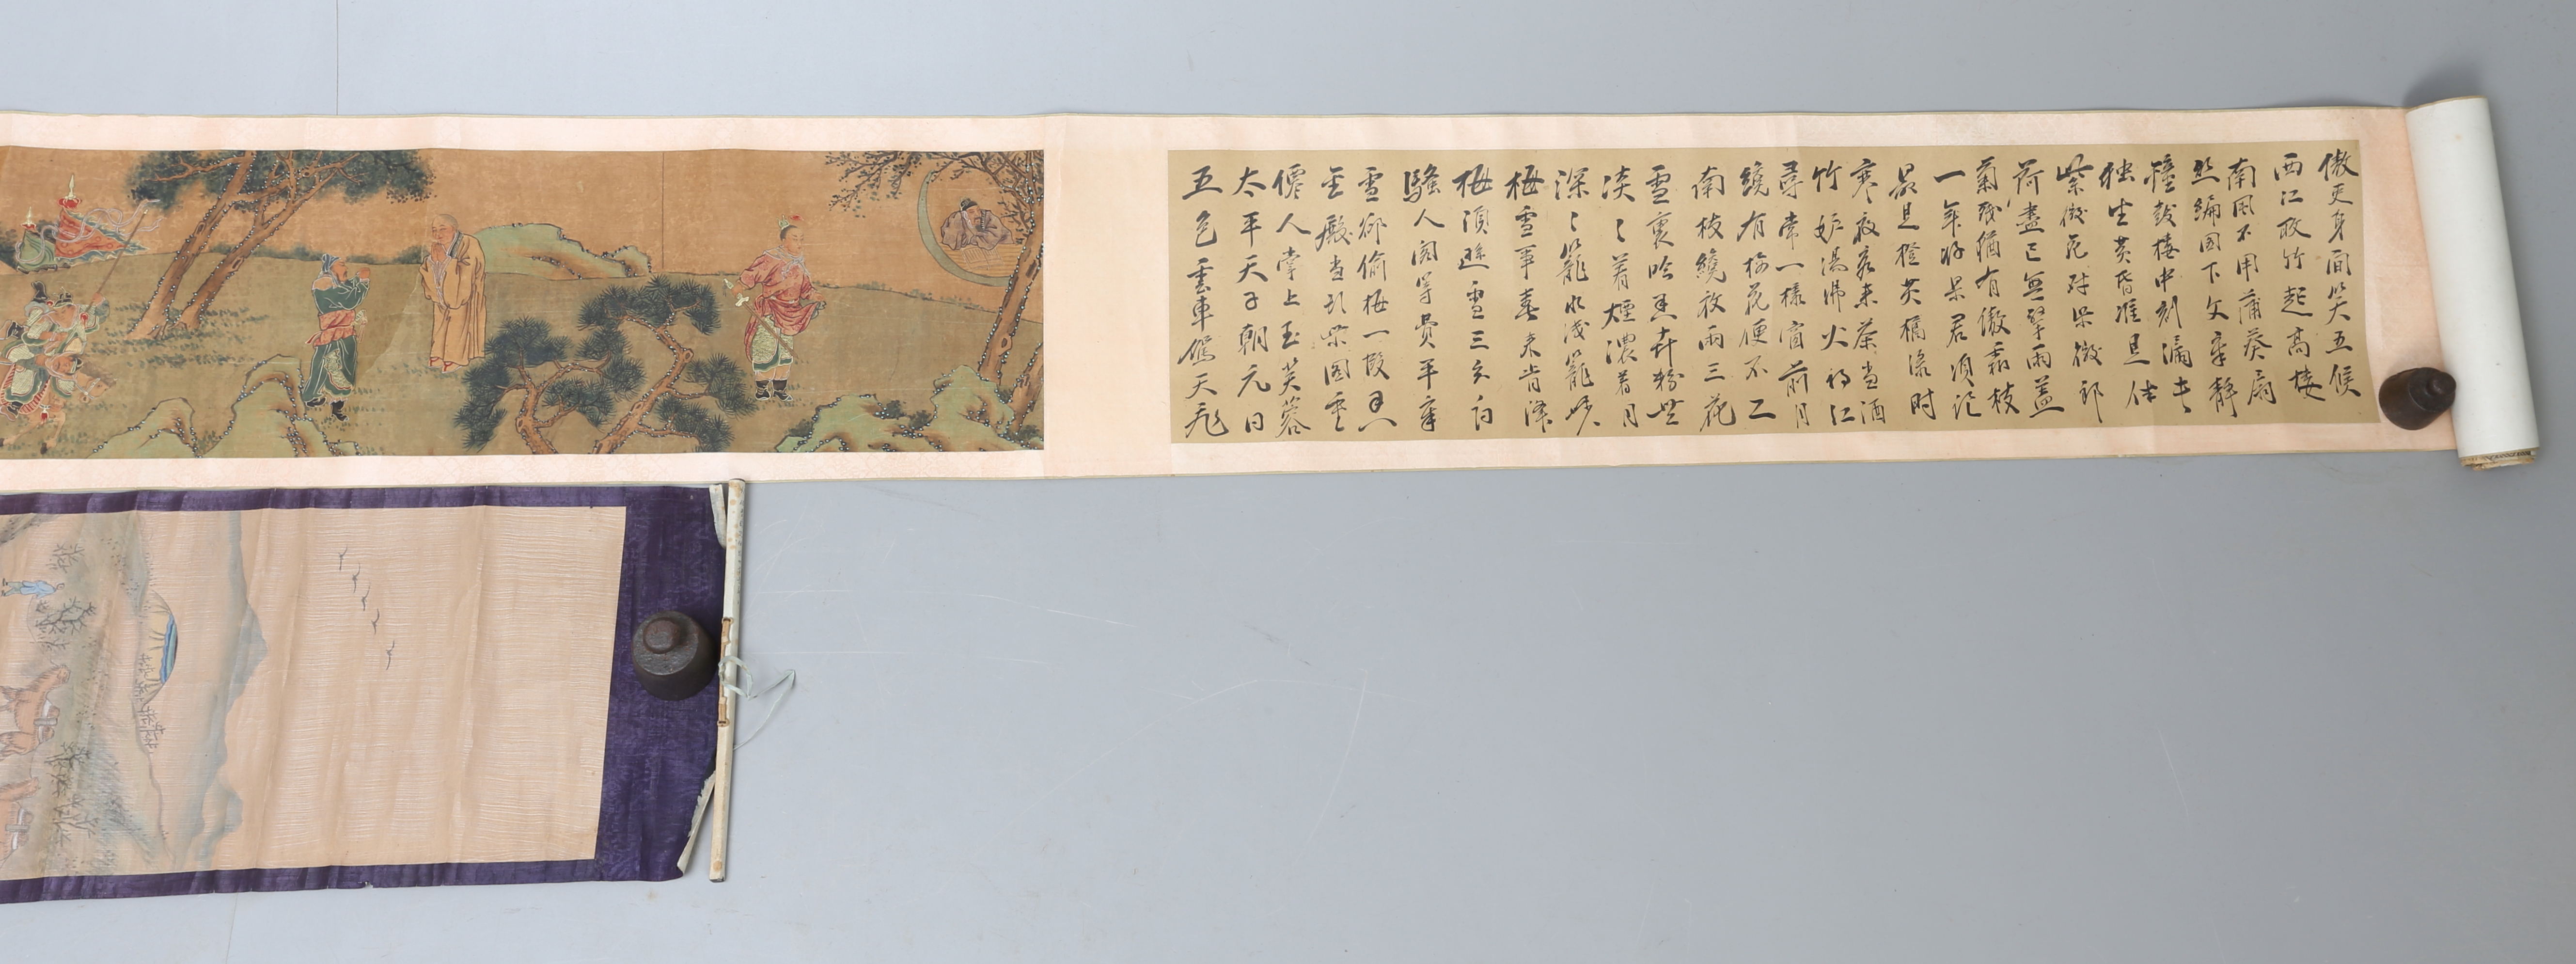 傲吏身閒笑五候
西江取竹起高樓
南風不用蒲葵扇
丝綸閣下文章靜
鐘鼓樓中刻漏長
独坐黄昏誰是伴
紫微花對紫微郎
荷盡已無擎雨蓋
菊殘猶有傲霜枝
一年好景君須記
最是橙黄橘綠時
寒夜客来茶當酒
竹炉湯沸火初红
尋常一樣窗前月
纔有梅花便不
南枝纔放兩三花
雪裏吟香弄粉些
淡〻着煙濃着月
深〻籠水淺籠沙
梅雪爭春未肯降
梅須遜雪三分白
騷人閣筆費平章
雪卻偷梅一段香
金殿當頭紫閣重
僊人掌上玉芙蓉
太平天子朝元日
五色雲車駕